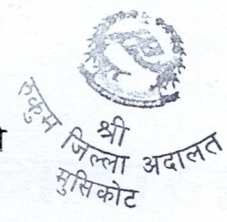 श्री
रुकुम जिल्ला अदालत
मुसिकोट